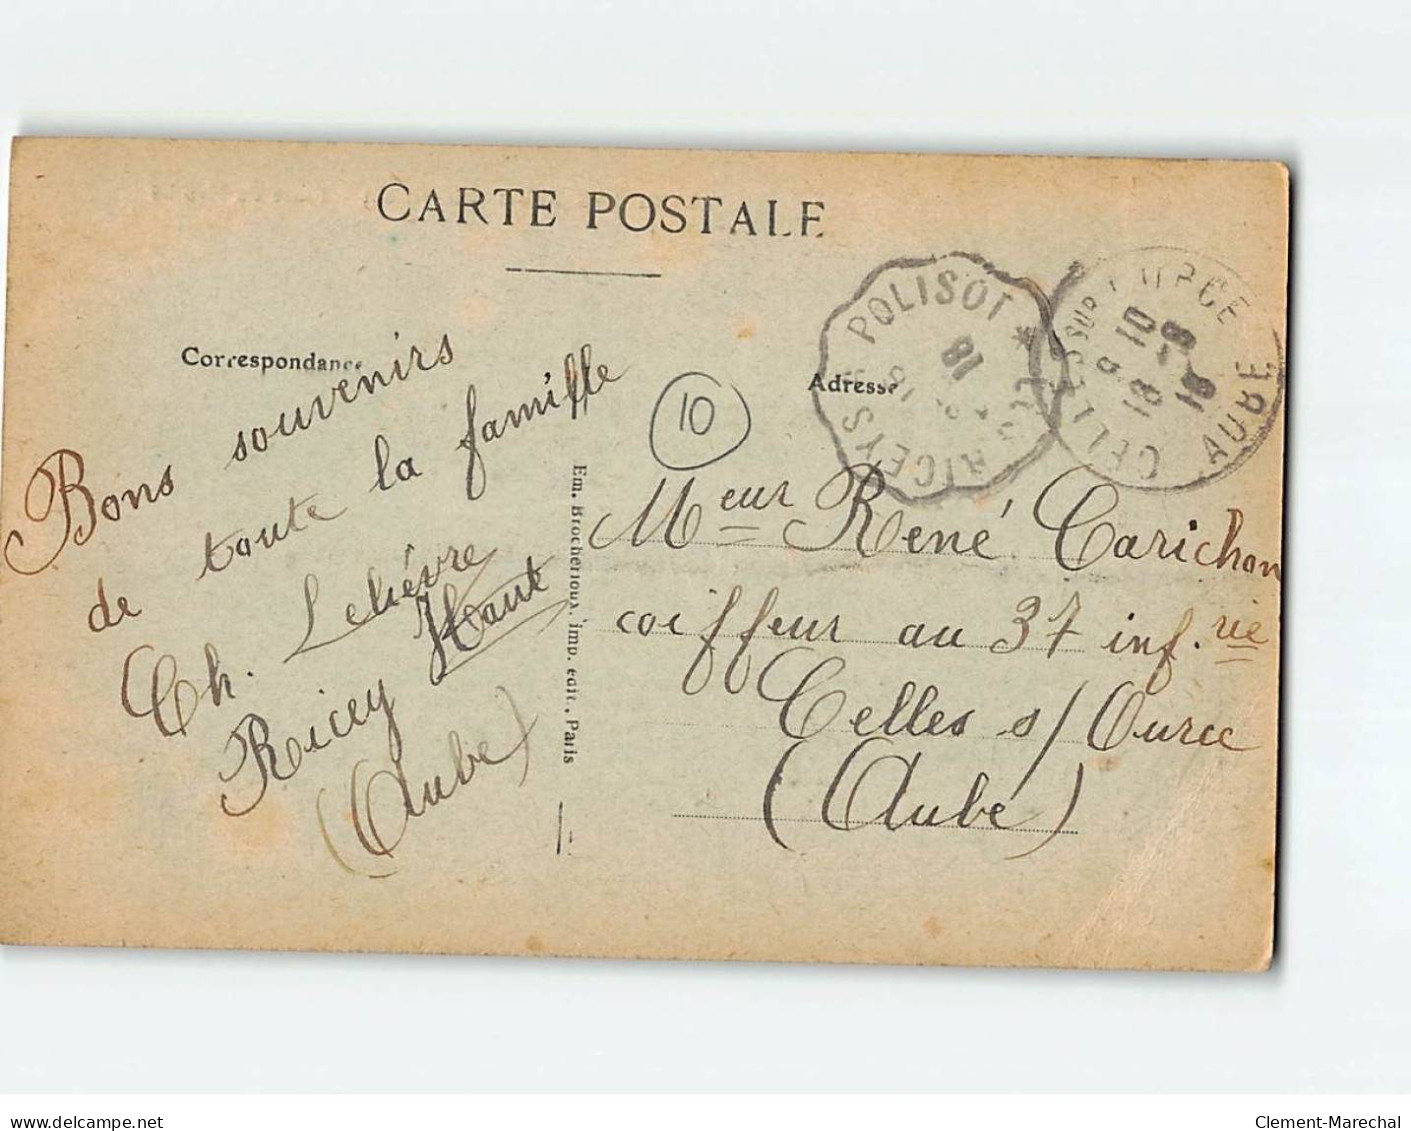 CARTE POSTALE
Correspondance
Bons souvenirs
de toute la famille
Ch. Leliévre
Ricey Haut
(Aube)
Adresse
10
POLISOT * RICEYS
18
CELLES SUR OURCE
AUBE
10
18
18
Meur René Carichon
coiffeur au 37 inf.rie
Celles s/ Ource
(Aube)
Em. Brocherioux, imp. edit., Paris
www.delcampe.net
Clement-Marechal